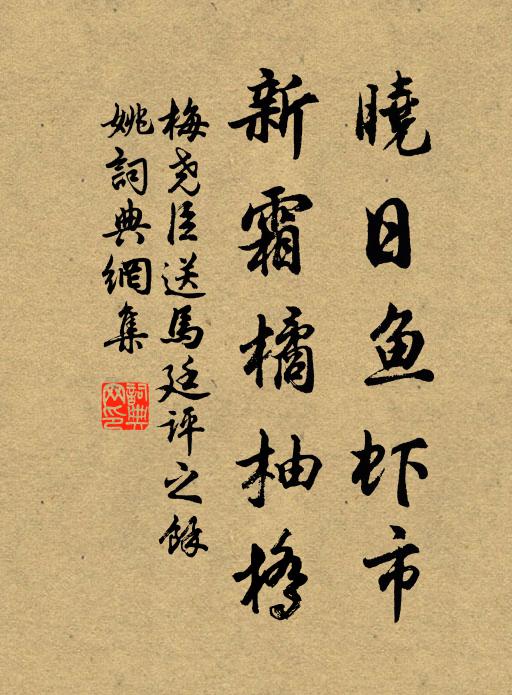 曉日鱼虾市
新霜橘柚橋
梅尧臣送馬廷評之餘
姚詞典網集
詞典
网印